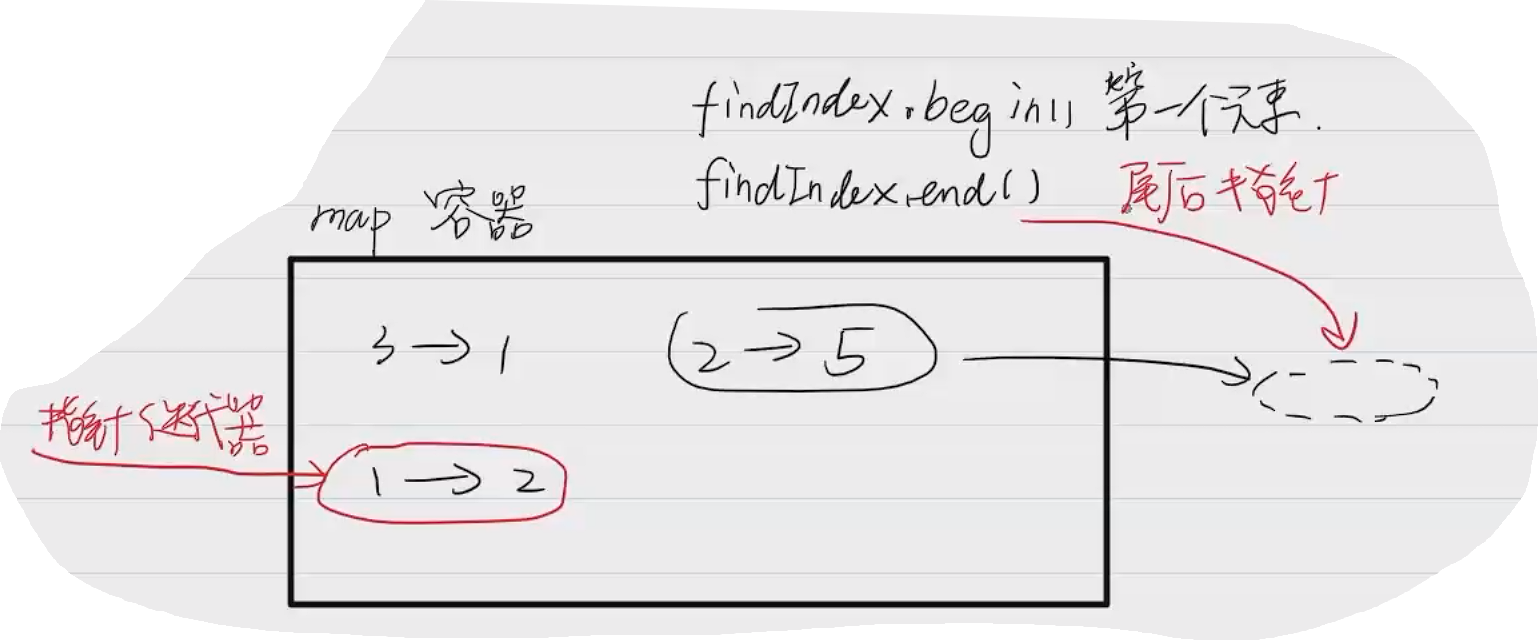 findIndex.begin() 第一个元素.
findIndex.end() 尾后指针
map 容器
3 → 1
2 → 5
指针 迭代器
1 → 2